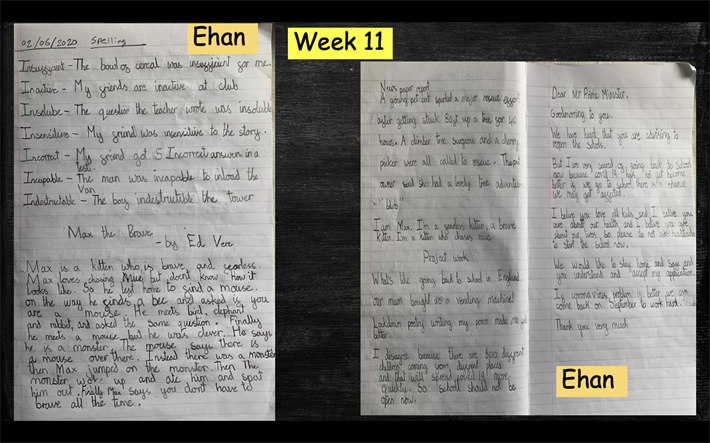 Ehan
Week 11
02/06/2020 Spelling
Insufficient - The bowl of cereal was insufficient for me.
Inactive - My friends are inactive at club
Insoluble - The question the teacher wrote was insoluble
Insensitive - My friend was insensitive to the story.
Incorrect - My friend got 5 Incorrect answers in a
test.
Incapable - The man was incapable to unload the
Van
Indestructable - The boy indestructible the tower
Max the Brave
- by Ed Vere
Max is a kitten who is brave and fearless.
Max loves chasing mouse but don't know how it
looks like. So he left home to find a mouse.
on the way he finds a bee and asked is you
are a mouse. He meets bird, elephant
and rabbit, and asked the same question. Finally
he meets a mouse but he was clever. He says
he is a monster. The mouse says there is
a mouse over there. Instead there was a monster
then Max jumped on the monster. Then The
monster woke up and ate him and spat
him out. Finally Max says you don't have to
brave all the time.
News paper report
A young pet cat sparked a major rescue effort
after getting stuck 80ft up a tree for 40
hours. A climber tree surgeons and a cherry
picker were all called to rescue. The pet
owner said she had a lovely tree adventure
I am Max. I'm a fearless kitten, a brave
kitten. I'm a kitten who chases mice
Project work
What's like going back to school in England
our mum bought us a vending machine!
Lockdown poetry writing my poem made me feel
better.
I disagree because there are 800 different
children coming from different places
and that will spread covid 19 more
quickly. So schools should not be
open now.
Dear Mr Prime Minister,
Goodmorning to you.
We have heard that you are advising to
reopen the schools.
But I am very scared of going back to school
now because covid 19 has not got become
better if we go to school there is a chance
we may get affected.
I believe you love all kids and I believe you
care about our health and I believe you care
about me, too, so please do not ask headteachers
to start the school now.
We would like to stay home and save and
you understand and accept my application.
If coronavirus problem is better we can
come back on September to work hard.
Thank you very much
Ehan